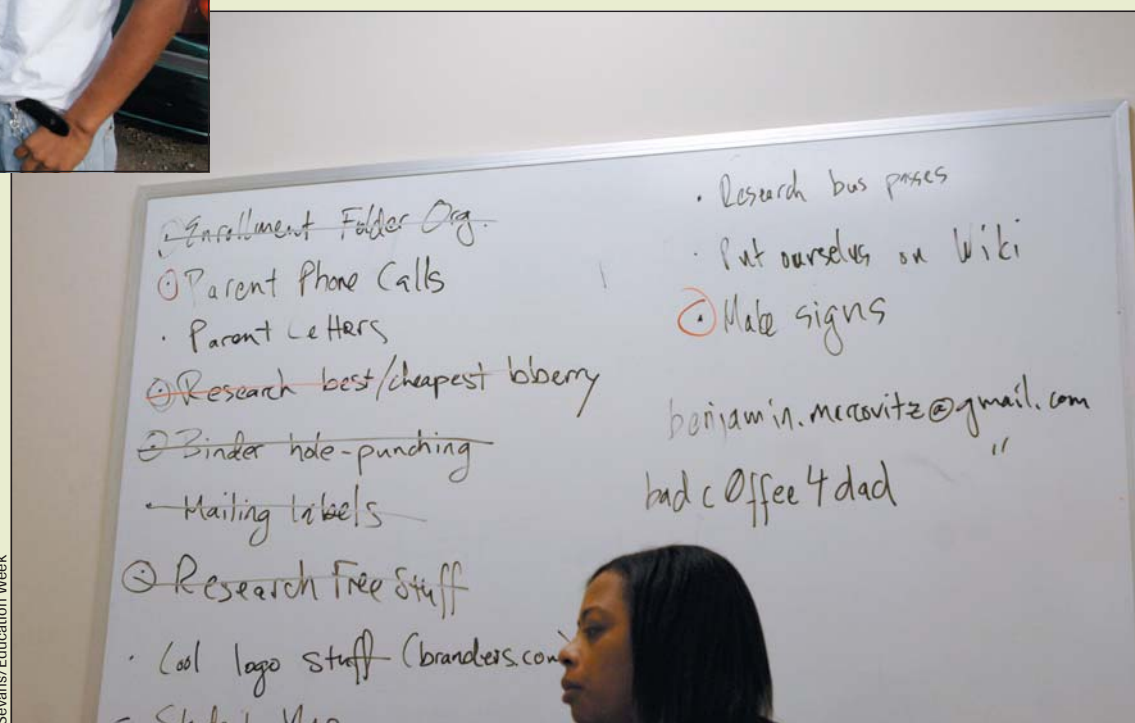 Enrollment Folder Org.
Parent Phone Calls
Parent Letters
Research best/cheapest bberry
Binder hole-punching
Mailing labels
Research Free Stuff
Cool logo stuff (branders.com)
Student
Research bus passes
Put ourselvs on Wiki
Make signs
benjamin.mcrovitz@gmail.com
"
bad c0ffee 4 dad
/Education Week